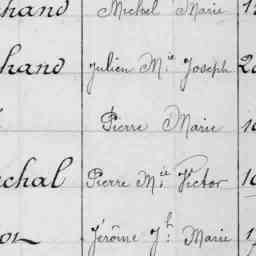 hand Michel Marie 1
hand Julien M.ie Joseph 2
Pierre Marie 1
chal Pierre M.ie Victor 10
Jérôme J.h Marie 1